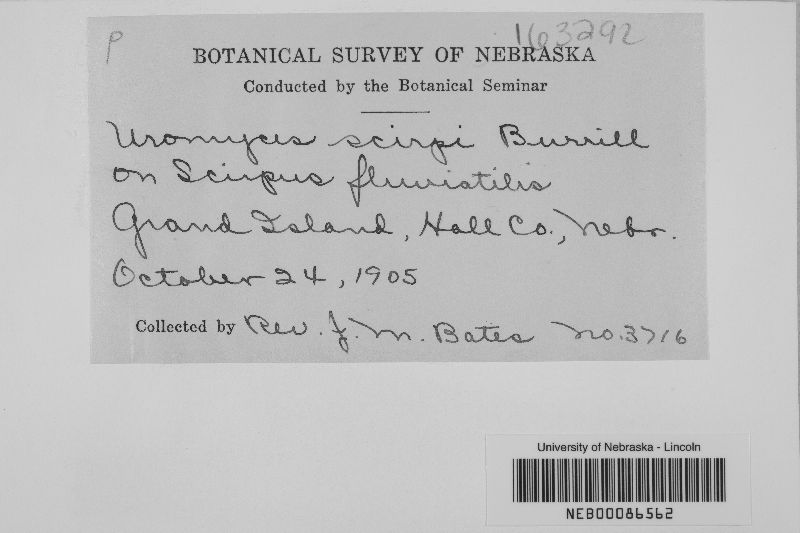 P
163292
BOTANICAL SURVEY OF NEBRASKA
Conducted by the Botanical Seminar
Uromyces scirpi Burrill
on Scirpus fluviatilis
Grand Island, Hall Co., Nebr.
October 24, 1905
Collected by Rev. J. M. Bates No. 3716
University of Nebraska - Lincoln
NEB00086562